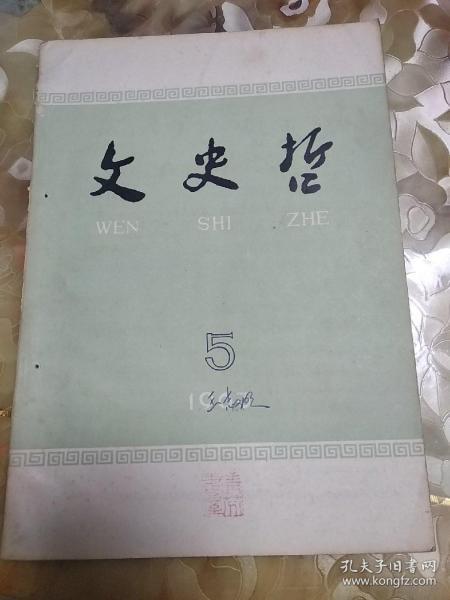 文史哲
WEN SHI ZHE
5
孔夫子旧书网
www.kongfz.com